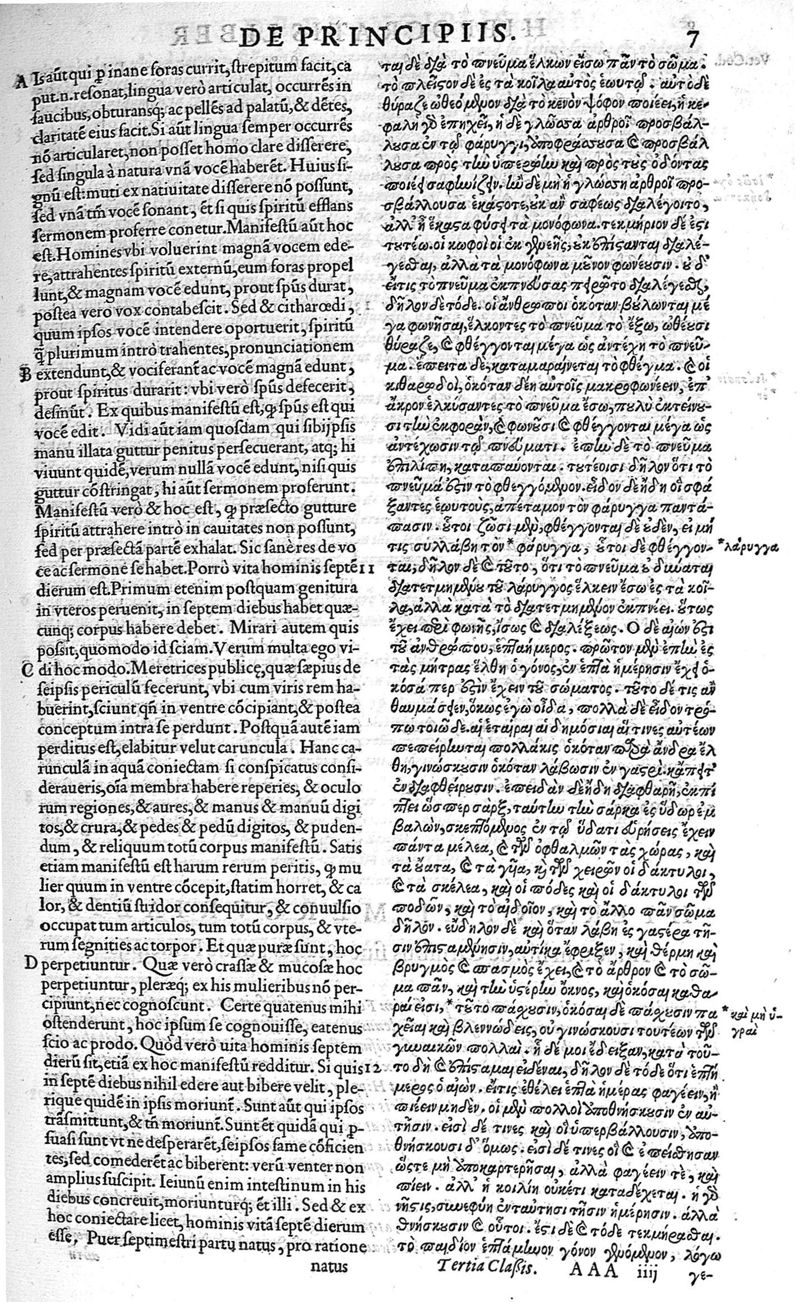 DE PRINCIPIIS. 7
A Is aūt qui ꝑ inane foras currit, strepitum facit, ca
put.n. resonat, lingua verò articulat, occurrēs in
faucibus, obturansq́; ac pelles ad palatū, & dētes,
claritatē eius facit. Si aūt lingua semper occurrēs
nō articularet, non posset homo clare disserere,
sed singula à natura vnā vocē haberēt. Huius si-
gnū est: muti ex natiuitate disserere nō possunt,
sed vnā tm̄ vocē sonant, ét si quis spiritū efflans
sermonem proferre conetur. Manifestū aūt hoc
est. Homines vbi voluerint magnā vocem ede-
re, attrahentes spiritū externū, eum foras propel
lunt, & magnam vocē edunt, prout spūs durat,
postea vero vox contabescit. Sed & citharœdi,
quum ipsos vocē intendere oportuerit, spiritū
q̄ plurimum intrò trahentes, pronunciationem
B extendunt, & vociferant ac vocē magnā edunt,
prout spiritus durarit: vbi verò spūs defecerit,
desinūt. Ex quibus manifestū est, ꝙ spūs est qui
vocē edit. Vidi aūt iam quosdam qui sibijpsis
manu illata guttur penitus persecuerant, atq; hi
viuunt quidē, verum nullā vocē edunt, nisi quis
guttur cōstringat, hi aūt sermonem proferunt.
Manifestū verò & hoc est, ꝙ præsecto gutture
spiritū attrahere intrò in cauitates non possunt,
sed per præsectā partē exhalat. Sic sanè res de vo
ce ac sermone se habet. Porrò vita hominis septē 11
dierum est. Primum etenim postquam genitura
in vteros peruenit, in septem diebus habet quæ-
cunq; corpus habere debet. Mirari autem quis
possit, quomodo id sciam. Verum multa ego vi-
C di hoc modo. Meretrices publicę, quæ sæpius de
seipsis periculū fecerunt, vbi cum viris rem ha-
buerint, sciunt qn̄ in ventre cōcipiant, & postea
conceptum intra se perdunt. Postquā autē iam
perditus est, elabitur velut caruncula. Hanc ca-
runculā in aquā coniectam si conspicatus consi-
deraueris, oīa membra habere reperies, & oculo
rum regiones, & aures, & manus & manuū digi
tos, & crura, & pedes & pedū digitos, & puden-
dum, & reliquum totū corpus manifestū. Satis
etiam manifestū est harum rerum peritis, ꝙ mu
lier quum in ventre cōcepit, statim horret, & ca
lor, & dentiū stridor consequitur, & conuulsio
occupat tum articulos, tum totū corpus, & vte-
rum segnities ac torpor. Et quæ puræ sunt, hoc
D perpetiuntur. Quæ verò crassæ & mucosæ hoc
perpetiuntur, pleræq; ex his mulieribus nō per-
cipiunt, nec cognoscunt. Certe quatenus mihi
ostenderunt, hoc ipsum se cognouisse, eatenus
scio ac prodo. Quòd verò vita hominis septem
dierū sit, etiā ex hoc manifestū redditur. Si quis 12
in septē diebus nihil edere aut bibere velit, ple-
rique quidē in ipsis moriunt̄. Sunt aūt qui ipsos
trāsmittunt, & tm̄ moriunt̄. Sunt ét quidā qui ꝑ-
suasi sunt vt ne desperarēt, seipsos fame cōficien
tes, sed comederēt ac biberent: verū venter non
amplius suscipit. Ieiunū enim intestinum in his
diebus concreuit, moriunturq́; ét illi. Sed & ex
hoc coniectare licet, hominis vitā septē dierum
esse. Puer septimestri partu natus, pro ratione
natus
ται δὲ διὰ τὸ πνεῦμα ἕλκων εἴσω πᾶν τὸ σῶμα.
τὸ πλεῖστον δὲ ἐς τὰ κοῖλα αὐτὸς ἑωυτῷ. αὐτὸ δὲ
θύραζε ὠθεόμενον διὰ τὸ κενὸν ψόφον ποιέει, ἡ κε-
φαλὴ γὰρ ἐπηχεῖ, ἡ δὲ γλῶσσα ἀρθροῖ προσβάλ-
λουσα ἐν τῷ φάρυγγι, ὑποφράσσουσα καὶ προσβάλ
λουσα πρὸς τὼ ὑπερῴω καὶ πρὸς τοὺς ὀδόντας
ποιέει σαφηνίζειν. ἢν δὲ μὴ ἡ γλῶσσα ἀρθροῖ προ-
σβάλλουσα ἑκάστοτε, οὐκ ἂν σαφέως διαλέγοιτο,
ἀλλ' ἢ ἕκαστα φύσει τὰ μονόφωνα. τεκμήριον δέ ἐστι
τουτέω. οἱ κωφοὶ οἱ ἐκ γενεῆς, οὐκ ἐπίστανται διαλέ-
γεσθαι, ἀλλὰ τὰ μονόφωνα μοῦνον φωνέουσιν. οὐδ'
εἴ τις τὸ πνεῦμα ἐκπνούσας πειρῷτο διαλέγεσθαι,
δῆλον δὲ τόδε. οἱ ἄνθρωποι ὁκόταν βούλωνται μέ
γα φωνῆσαι, ἕλκοντες τὸ πνεῦμα τὸ ἔξω, ὠθέουσι
θύραζε, καὶ φθέγγονται μέγα ὡς ἀντέχῃ τὸ πνεῦ-
μα. ἔπειτα δὲ, καταμαραίνεται τὸ φθέγμα. καὶ οἱ
κιθαρῳδοὶ, ὁκόταν δέῃ αὐτοῖς μακροφωνέειν, ἐπ'
ἄκρον ἑλκύσαντες τὸ πνεῦμα ἔσω, πουλὺ ἐκτείνου-
σι τὼ ἐκφορὰν, καὶ φωνοῦσι καὶ φθέγγονται μέγα ὡς
ἀντέχωσιν τῷ πνεύματι. ἐπὼ δὲ τὸ πνεῦμα
ἐπιλίπῃ, καταπαύονται. τουτέοισι δῆλον ὅτι τὸ
πνεῦμά ἐστιν τὸ φθεγγόμενον. εἶδον δὲ ἤδη οἳ σφά
ξαντες ἑωυτοὺς, ἀπέταμον τὸν φάρυγγα παντά-
πασιν. οὗτοι ζῶσι μὲν, φθέγγονται δὲ οὐδὲν, εἰ μή
τις συλλάβῃ τὸν * φάρυγγα, οὗτοι δὲ φθέγγον- *λάρυγγα
ται, δῆλον δὲ καὶ τοῦτο, ὅτι τὸ πνεῦμα οὐ δύναται
διατετμημένου τοῦ λάρυγγος ἕλκειν ἔσω ἐς τὰ κοῖ-
λα, ἀλλὰ κατὰ τὸ διατετμημένον ἐκπνέει. οὕτως
ἔχει περὶ φωνῆς, ἴσως καὶ διαλέξεως. Ὁ δὲ αἰών ἐστι
τοῦ ἀνθρώπου, ἑπταήμερος. πρῶτον μὲν ἐπὼ ἐς
τὰς μήτρας ἔλθῃ ὁ γόνος, ἐν ἑπτὰ ἡμέρῃσιν ἔχει ὁ-
κόσα περ ἐστὶν ἔχειν τοῦ σώματος. τοῦτο δέ τις ἂν
θαυμάσειεν, ὅκως ἐγὼ οἶδα, πολλὰ δὲ εἶδον τρό-
πῳ τοιῷδε. αἱ ἑταῖραι αἱ δημόσιαι αἵ τινες αὐτέων
πεπείρωται πολλάκις ὁκόταν παρὰ ἄνδρα ἔλ
θῃ, γινώσκουσιν ὁκόταν λάβωσιν ἐν γαστρί. κἄπειτ'
ἐνδιαφθείρουσιν. ἐπειδὰν δὲ ἤδη διαφθαρῇ, ἐκπί
πτει ὥσπερ σάρξ, ταύτω τὼ σάρκα ἐς ὕδωρ ἐμ
βαλὼν, σκεπτόμενος ἐν τῷ ὕδατι εὑρήσεις ἔχειν
πάντα μέλεα, καὶ τῶν ὀφθαλμῶν τὰς χώρας, καὶ
τὰ οὔατα, καὶ τὰ γυῖα, καὶ τῶν χειρῶν οἱ δάκτυλοι,
καὶ τὰ σκέλεα, καὶ οἱ πόδες καὶ οἱ δάκτυλοι τῶν
ποδῶν, καὶ τὸ αἰδοῖον, καὶ τὸ ἄλλο πᾶν σῶμα
δῆλον. εὔδηλον δὲ καὶ ὅταν λάβῃ ἐς γαστέρα τῇ-
σιν ἐπισταμένῃσιν, αὐτίκα ἔφριξεν, καὶ θέρμη καὶ
βρυγμὸς καὶ σπασμὸς ἔχει, καὶ τὸ ἄρθρον καὶ τὸ σῶ-
μα πᾶν, καὶ τὼ ὑστέρω ὄκνος, καὶ ὁκόσαι καθα-
ραί εἰσι, * τοῦτο πάσχουσιν, ὁκόσαι δὲ πάσχουσι πα * καὶ μὴ ὑ-
χεῖαι καὶ βλεννώδεις, οὐ γινώσκουσι τουτέων τῶν γραί
γυναικῶν πολλαί. ᾗ δέ μοι ἔδειξαν, κατὰ τοῦ-
το δὴ καὶ ἐπίσταμαι εἰδέναι, δῆλον δὲ τόδε ὅτι ἑπτή
μερος ὁ αἰών. εἴ τις ἐθέλει ἑπτὰ ἡμέρας φαγέειν, ἢ
πιέειν μηδέν. οἱ μὲν πολλοὶ ἀποθνήσκουσιν ἐν αὐ-
τῇσιν. εἰσὶ δέ τινες καὶ οἳ ὑπερβάλλουσιν, ἀπο-
θνήσκουσι δ' ὅμως. εἰσὶ δέ τινες οἳ καὶ ἐπείσθησαν
ὥστε μὴ ἀποκαρτερῆσαι, ἀλλὰ φαγέειν τὲ, καὶ
πιέειν. ἀλλ' ἡ κοιλίη οὐκέτι καταδέχεται. ἡ γὰρ
νῆστις, συνεφύη ἐν ταύτῃσι τῇσιν ἡμέρῃσιν. ἀλλὰ
θνήσκουσιν καὶ οὗτοι. ἔστι δὲ καὶ τόδε τεκμήρασθαι.
τὸ παιδίον ἑπτάμηνον γόνον γενόμενον, λόγῳ
Tertia Claßis. AAA iiij γε-